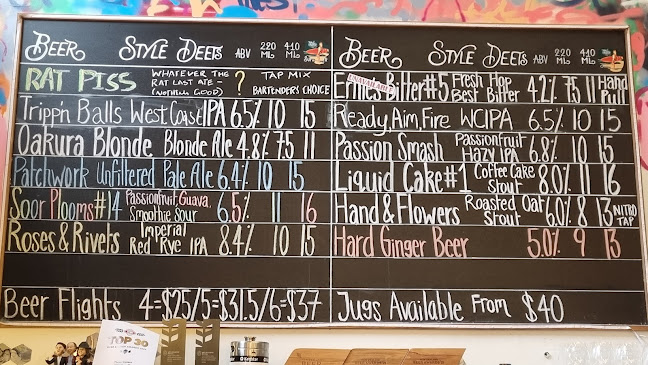 Beer Style Deets ABV 220 ML 440 ML
Rat Piss Whatever the rat last ate - (nothing good) ? Tap Mix Bartenders Choice
Tripp'n Balls West Coast IPA 6.5% 10 15
Oakura Blonde Blonde Ale 4.8% 7.5 11
Patchwork Unfiltered Pale Ale 6.4% 10 15
Soor Plooms #14 Passionfruit, Guava, Smoothie Sour 6.5% 11 16
Roses & Rivets Imperial Red Rye IPA 8.4% 10 15
Beer Flights 4=$25/5=$31.5/6=$37
Beer Style Deets ABV 220 ML 440 ML
Ernies Bitter #5 Fresh Hop Best Bitter 4.2% 7.5 11 Hand Pull
Ready, Aim, Fire WCIPA 6.5% 10 15
Passion Smash Passionfruit Hazy IPA 6.8% 10 15
Liquid Cake #1 Coffee Cake Stout 8.0% 11 16
Hand & Flowers Roasted Oat Stout 6.0% 8 13 Nitro Tap
Hard Ginger Beer 5.0% 9 13
Jugs Available From $40
TOP 30